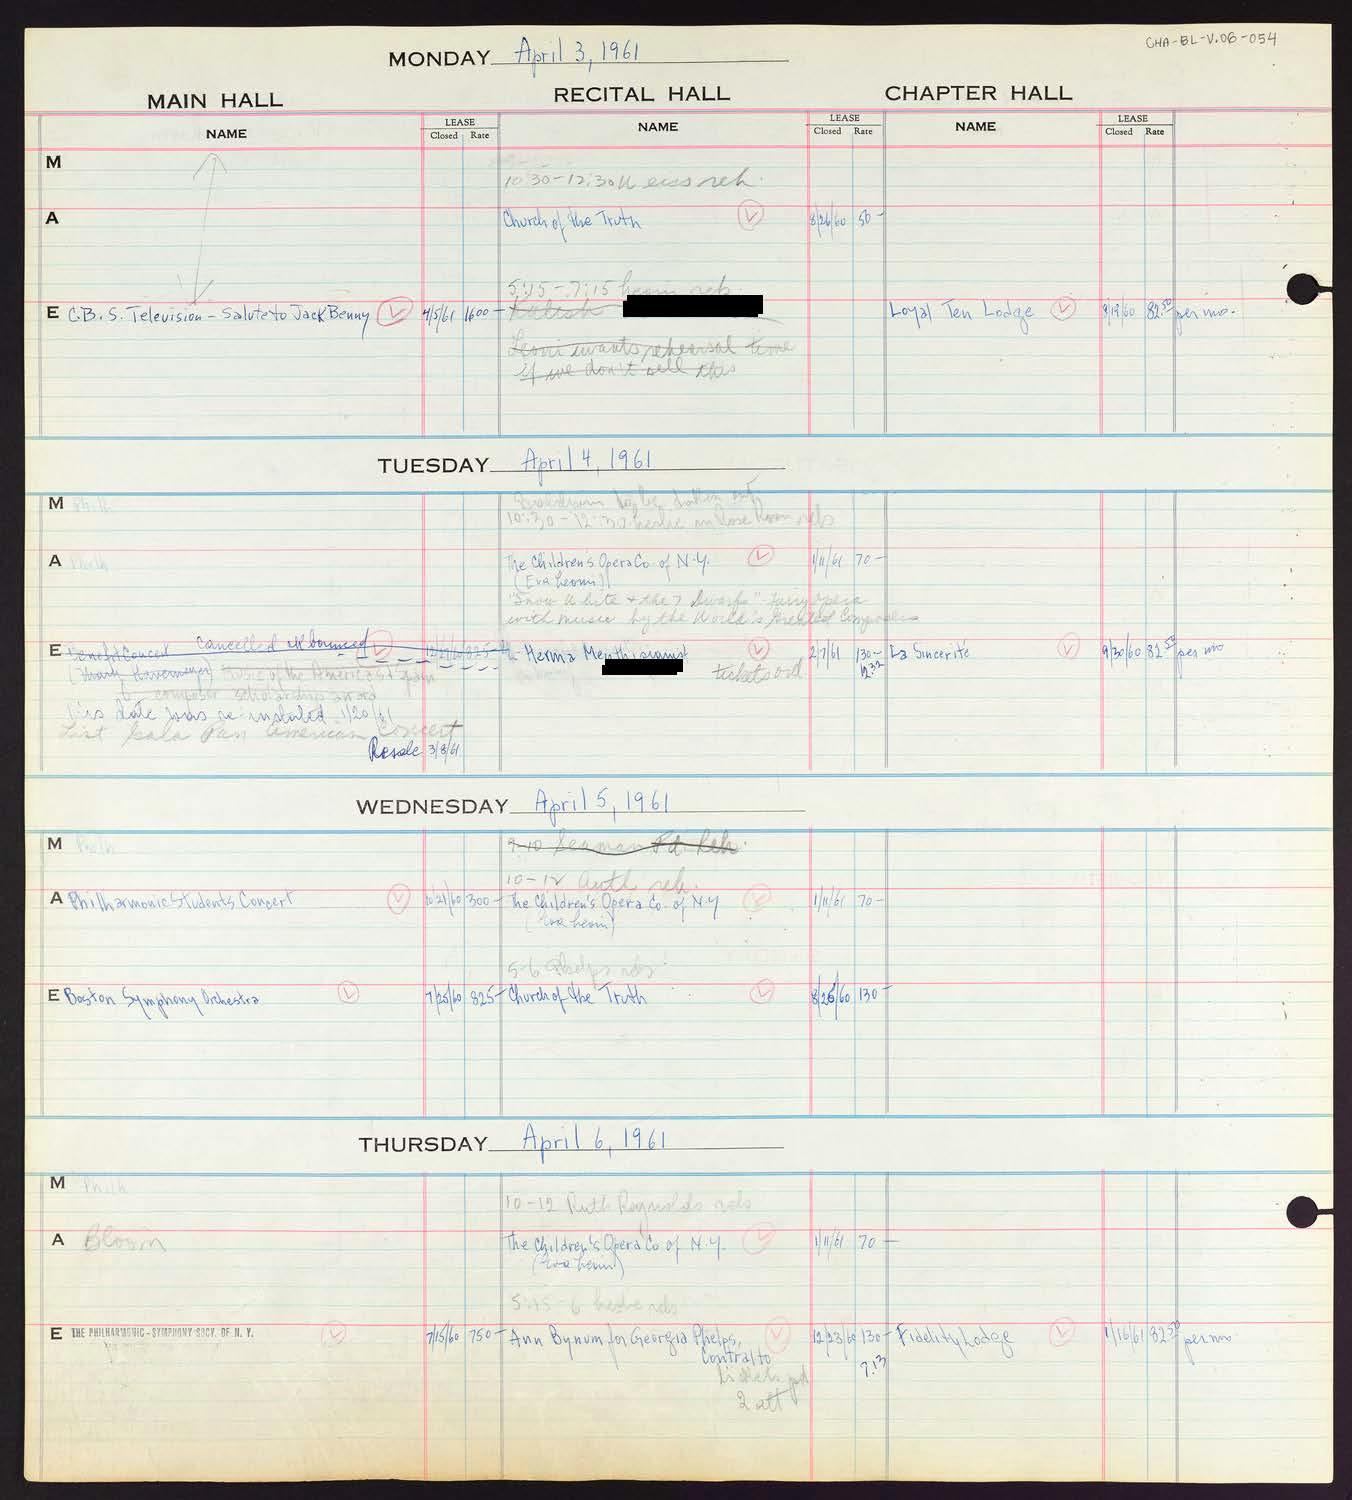 CHA-BL-V.06-054
MONDAY April 3, 1961
MAIN HALL RECITAL HALL CHAPTER HALL
NAME LEASE Closed Rate NAME LEASE Closed Rate NAME LEASE Closed Rate
M
10:30-12:30 reh.
A Church of the Truth 8/26/60 50-
5:15-7:15 reh.
E C.B.S. Television - Salute to Jack Benny 4/5/61 1600- Loyal Ten Lodge 9/19/60 82.50 per mo.
Leoni wants rehearsal time
if we don't sell this
TUESDAY April 4, 1961
M Phil
10:30-12:30 in Rose Room reh
A Phil The Children's Opera Co. of N.Y. 1/11/61 70-
(Eva Leoni)
"Snow White & the 7 Dwarfs" - fairy opera
with music by the World's Greatest Composers
E Benefit Concert cancelled 825- Herma Menth, pianist 2/7/61 130- La Sincerité 9/30/60 82.50 per mo
Music of the Americas tickets
composer scholarship award
This date was re-instated 1/20/61
List Gala Pan American Concert
Resale 3/8/61
WEDNESDAY April 5, 1961
M Phil 9-10 Seaman Reh.
10-12 reh.
A Philharmonic Students Concert 10/21/60 300- The Children's Opera Co. of N.Y 1/11/61 70-
(Eva Leoni)
5-6 Phelps reh
E Boston Symphony Orchestra 7/25/60 825- Church of the Truth 8/26/60 130-
THURSDAY April 6, 1961
M Phil
10-12 Ruth Reynolds reh
A Bloom The Children's Opera Co of N.Y. 1/11/61 70-
(Eva Leoni)
5:15-6 reh
E THE PHILHARMONIC-SYMPHONY SOCY. OF N. Y. 7/15/60 750- Ann Bynum for Georgia Phelps, 12/23/60 130- Fidelity Lodge 1/16/61 82.50 per mo
Contralto 7.13
tickets pd
2 att